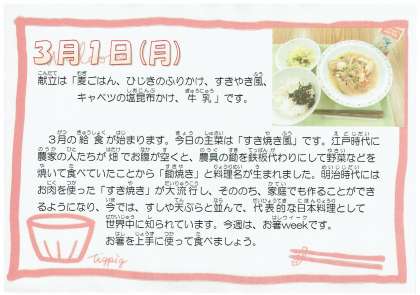 3月1日(月)
献立は「麦ごはん、ひじきのふりかけ、すきやき風、
キャベツの塩昆布かけ、牛乳」です。
3月の給食が始まります。今日の主菜は「すき焼き風」です。江戸時代に
農家の人たちが畑でお腹が空くと、農具の鋤を鉄板代わりにして野菜などを
焼いて食べていたことから「鋤焼き」と料理名が生まれました。明治時代には
お肉を使った「すき焼き」が大流行し、そののち、家庭でも作ることができ
るようになり、今では、すしや天ぷらと並んで、代表的な日本料理として
世界中に知られています。今週は、お箸weekです。
お箸を上手に使って食べましょう。